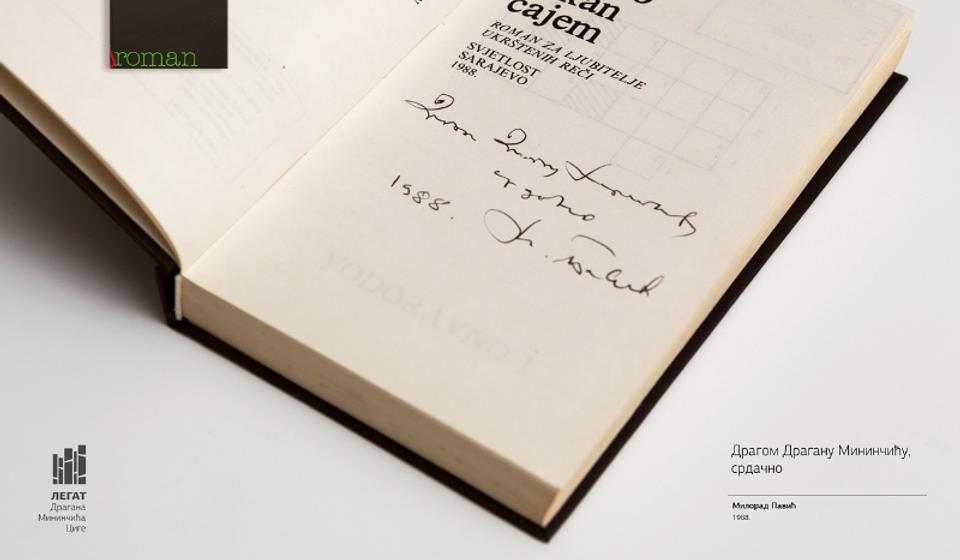 roman
kan
čajem
ROMAN ZA LJUBITELJE
UKRŠTENIH REČI
SVJETLOST
SARAJEVO
1988.
срдачно
1988.
М. Павић
VODORAVNO 1
ЛЕГАТ
Драгана
Мининчића
Циге
Драгом Драгану Мининчићу,
срдачно
Милорад Павић
1988.